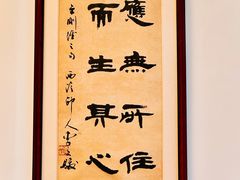 應無所住
而生其心
金剛經之句 西泠印人李文媛